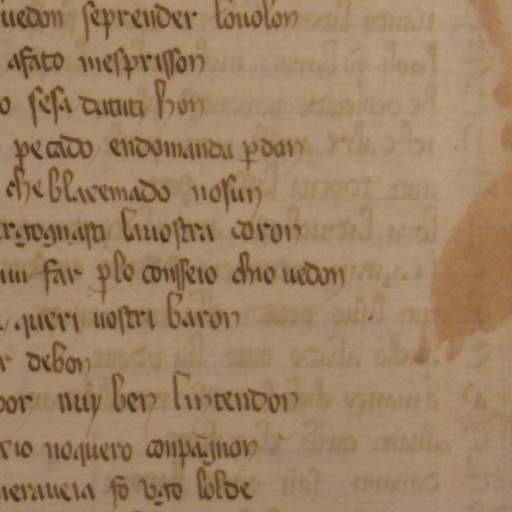 uedon seprender louolon
afato mesprisson
o sesa datuti hon
pecado endomanda pdon
che blacemado nosun
rgognasti liuostra coron
far plo consseio chio uedon
queri uostri baron
r debon
por nuy ben lintendon
rio noquero conpagnon
meraueia fo lolde